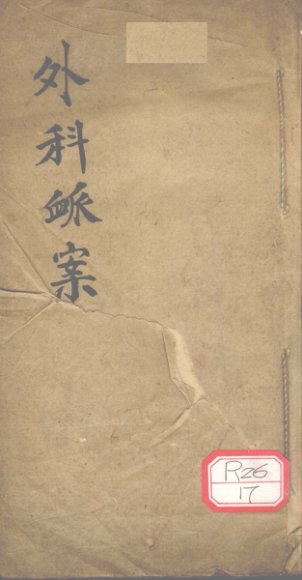 外科脈案
R26
17